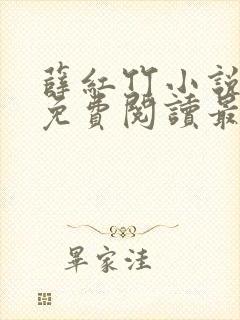 薛紅竹小說
免費閱讀最
畢家洼